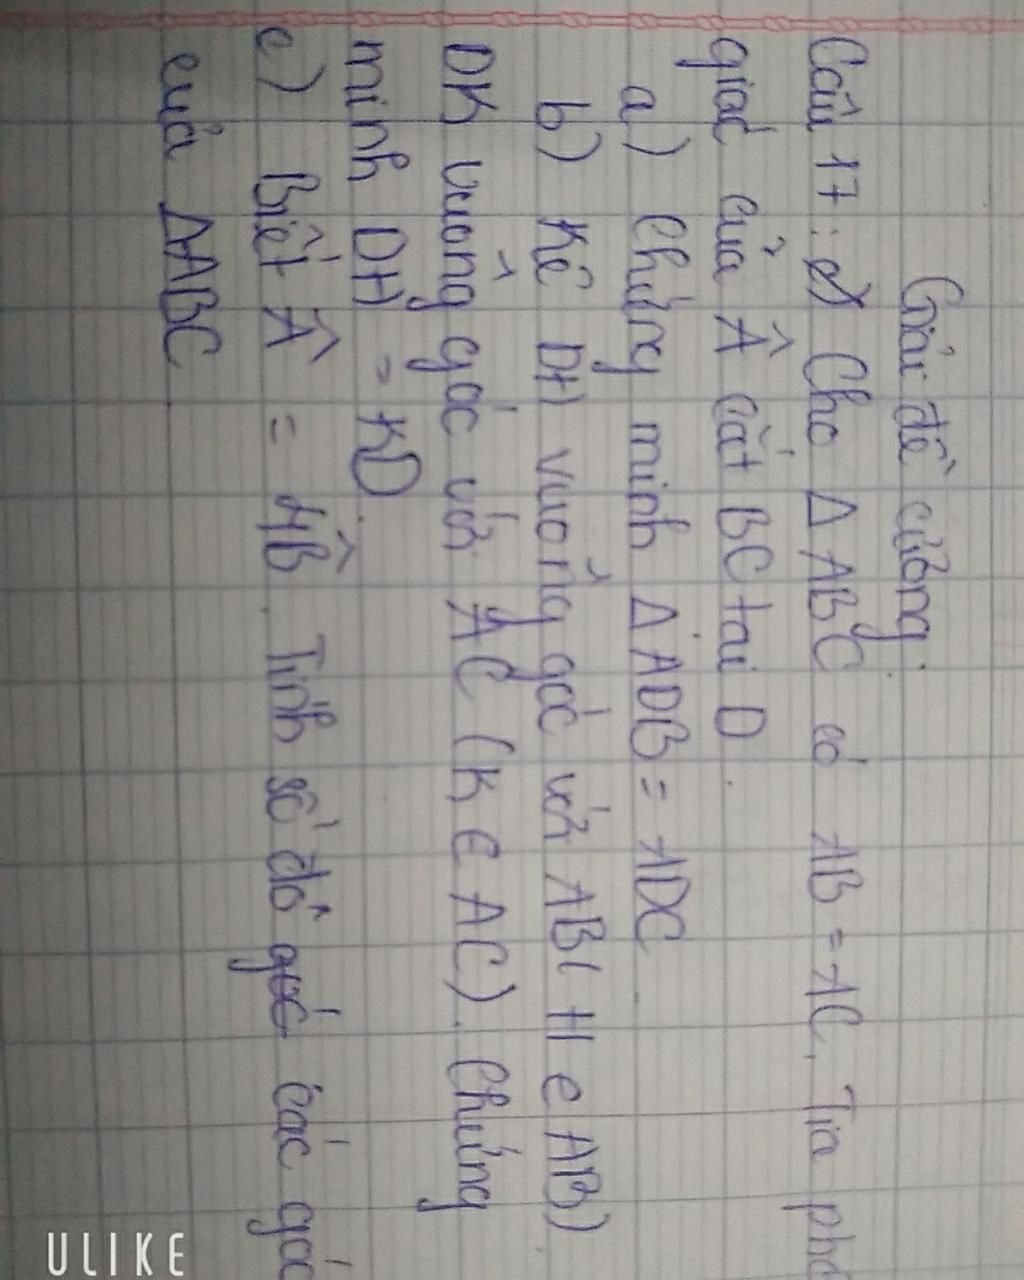 Giải đề cương.
Câu 17: Cho Δ ABC có AB = AC, Tia phâ
giác của Â cắt BC tại D.
a) Chứng minh Δ ADB = ADC.
b) Kẻ DH vuông góc với AB( H ∈ AB)
DK vuông góc với AC (K ∈ AC). Chứng
minh DH = KD.
c) Biết Â = 4B̂. Tính số đo các góc
của ΔABC
ULIKE